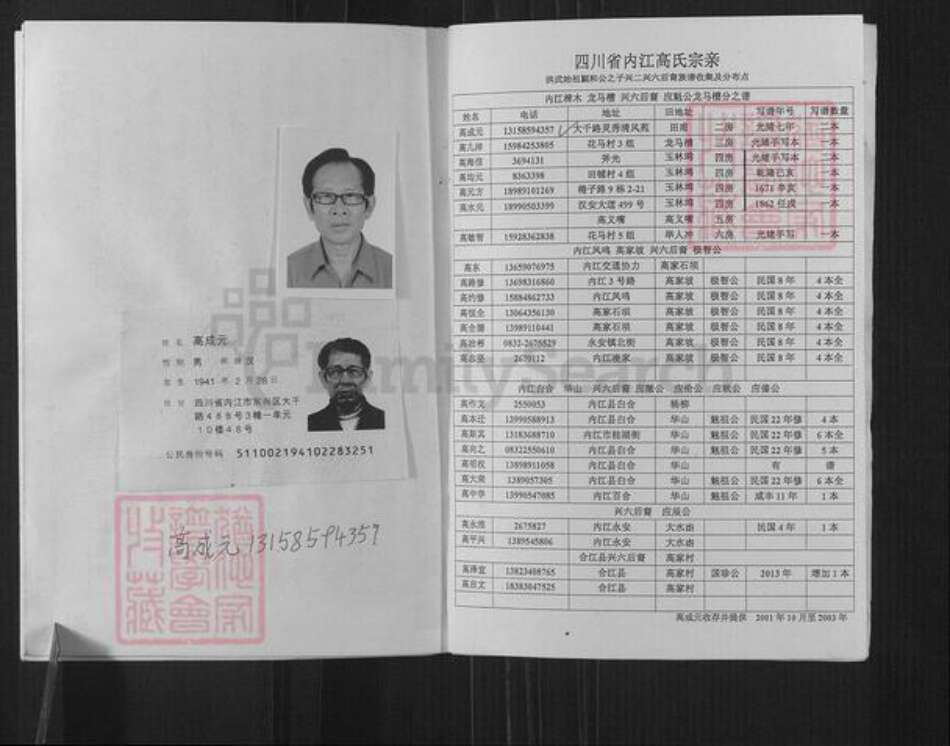 姓名 高成元
性别 男 民族 汉
出生 1941 年 2 月 28 日
住址 四川省内江市东兴区大千
路488号3幢一单元
10楼48号
公民身份号码 511002194102283251
高成元 13158594357
FamilySearch
四川省内江高氏宗亲
洪武始祖嗣和公之子兴二兴六后裔族谱收集及分布点
内江樟木 龙马槽 兴六后裔 应魁公龙马槽分之谱
姓名 电话 地址 田地址 写谱年号 写谱数量
高成元 13158594357 大千路灵秀清风苑 田南 二房 光绪七年 二本
15984253805 花马村 3 组 龙马槽 三房 光绪手写本 一本
高海信 3694131 斧光 玉林湾 四房 光绪手写本 二本
高均元 8363398 田铺村 4 组 玉林湾 四房 乾隆己亥 一本
高元方 18989101269 梅子路 9 栋 2-21 玉林湾 四房 1671 辛亥 一本
高水元 18990503399 汉安大道 499 号 玉林湾 四房 1862 任戌 一本
高义嘴 高义嘴 五房
高敏智 15928362838 花马村 5 组 举人冲 六房 光绪手写 一本
内江凤鸣 高家坡 兴六后裔 极智公
高东 13659076975 内江交通协力 高家石坝
高路修 13698316860 内江 3 号路 高家坡 极智公 民国 8 年 4 本全
高约修 15884862733 内江凤鸣 高家坡 极智公 民国 8 年 4 本全
高恒全 13064356130 高家石坝 高家坡 极智公 民国 8 年 4 本全
13989110441 高家石坝 高家坡 极智公 民国 8 年 4 本全
0832-2676529 永安镇北街 高家坡 极智公 民国 8 年 4 本全
2670112 内江凌家 高家坡 极智公 民国 8 年 4 本全
内江白合 华山 兴六后裔 应徽公 应价公 应秋公 应偹公
高作文 2550053 内江县白合 杨柳
高本迁 13990588913 内江县白合 华山 魁祖公 民国 22 年修 4 本
高斯其 13183688710 内江市桂湖街 华山 魁祖公 民国 22 年修 6 本全
高向之 08322550610 内江县白合 华山 魁祖公 民国 22 年修 5 本
高绍权 13898911058 内江县白合 华山 有 谱
高大荣 1389057305 内江县白合 华山 魁祖公 民国 22 年修 6 本全
高中华 13990547085 内江百合 华山 魁祖公 咸丰 11 年 1 本
兴六后裔 应辰公
高永浩 2675827 内江永安 大水亩 民国 4 年 1 本
高平兴 1389545806 内江永安 大水亩
合江县兴六后裔 高家村
高泽宣 13823408765 合江县 高家村 国珍公 2013 年 增加 1 本
高自文 18383047525 合江县 高家村
高成元收存并提供 2001 年 10 月至 2003 年